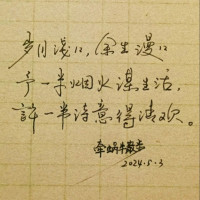 岁月浅浅,余生漫漫
予一半烟火谋生活,
许一半诗意得清欢。
牵蜗牛散步
2024.5.3